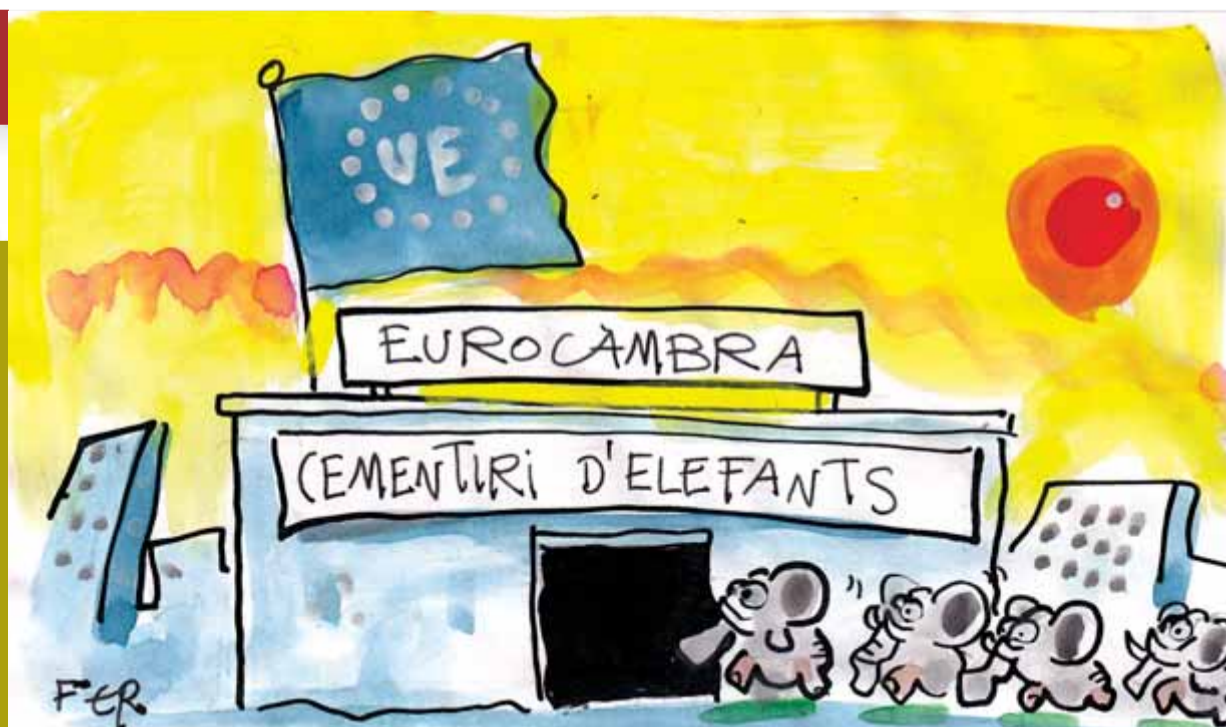 UE
EUROCÀMBRA
CEMENTIRI D'ELEFANTS
FER